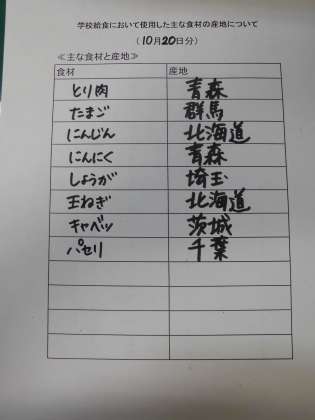 学校給食において使用した主な食材の産地について
(10月20日分)
≪主な食材と産地≫
食材 産地
とり肉 青森
たまご 群馬
にんじん 北海道
にんにく 青森
しょうが 埼玉
玉ねぎ 北海道
キャベツ 茨城
パセリ 千葉